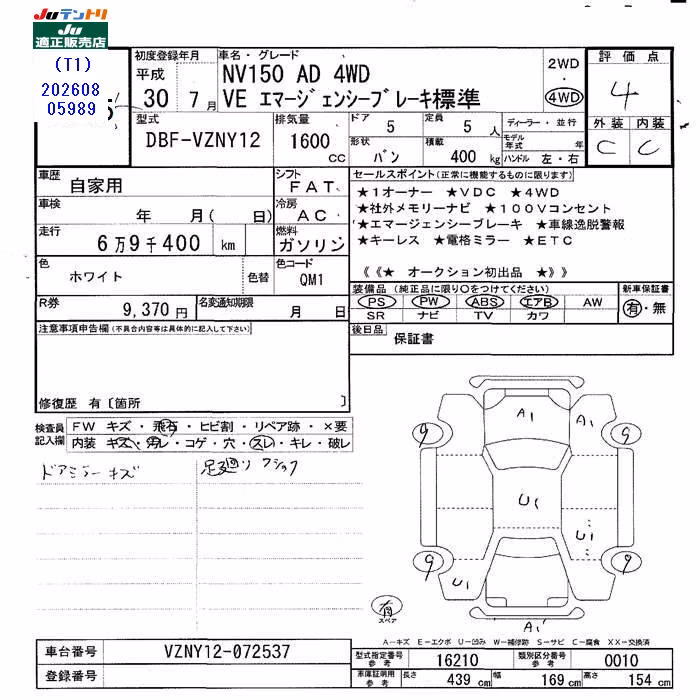 Juテントリ
Ju
適正販売店
(T1)
202608
05989
初度登録年月
平成
30 7月
車名・グレード
NV150 AD 4WD
VE エマージェンシーブレーキ標準
2WD
・
4WD
評価点
4
外装 内装
C C
型式
DBF-VZNY12
排気量
1600
cc
ドア 5
定員 5 人
形状 バン
積載 400 kg
ディーラー・並行
モデル年式 年
ハンドル 左・右
車歴
自家用
シフト
FAT
車検
年 月( 日)
冷房
AC
走行
6万9千400 km
燃料
ガソリン
色
ホワイト
色替
色コード
QM1
R券
9,370円
名変通知期限
月 日
セールスポイント(正常に機能するものに限ります)
★1オーナー ★VDC ★4WD
★社外メモリーナビ ★100Vコンセント
★エマージェンシーブレーキ ★車線逸脱警報
★キーレス ★電格ミラー ★ETC
《《★ オークション初出品 ★》》
装備品 (純正品に限り○をつけてください)
PS PW ABS エアB AW
SR ナビ TV カワ
新車保証書
有・無
後日品
保証書
注意事項申告欄(不具合内容等は具体的に記入して下さい)
修復歴 有〔箇所 〕
検査員
記入欄
FW キズ・飛石・ヒビ割・リペア跡・×要
内装 キズ・汚レ・コゲ・穴・スレ・キレ・破レ
ドアミラーキズ
足廻りフショク
A1 A1
9 9
U1
U1
9 9
U1
A1
有
スペア
A-キズ E-エクボ U-凹み W-補修跡 S-サビ C-腐食 XX-交換済
車台番号
VZNY12-072537
登録番号
型式指定番号
参考
16210
類別区分番号
参考
0010
車庫証明用
参考
長さ 439 cm 幅 169 cm 高さ 154 cm